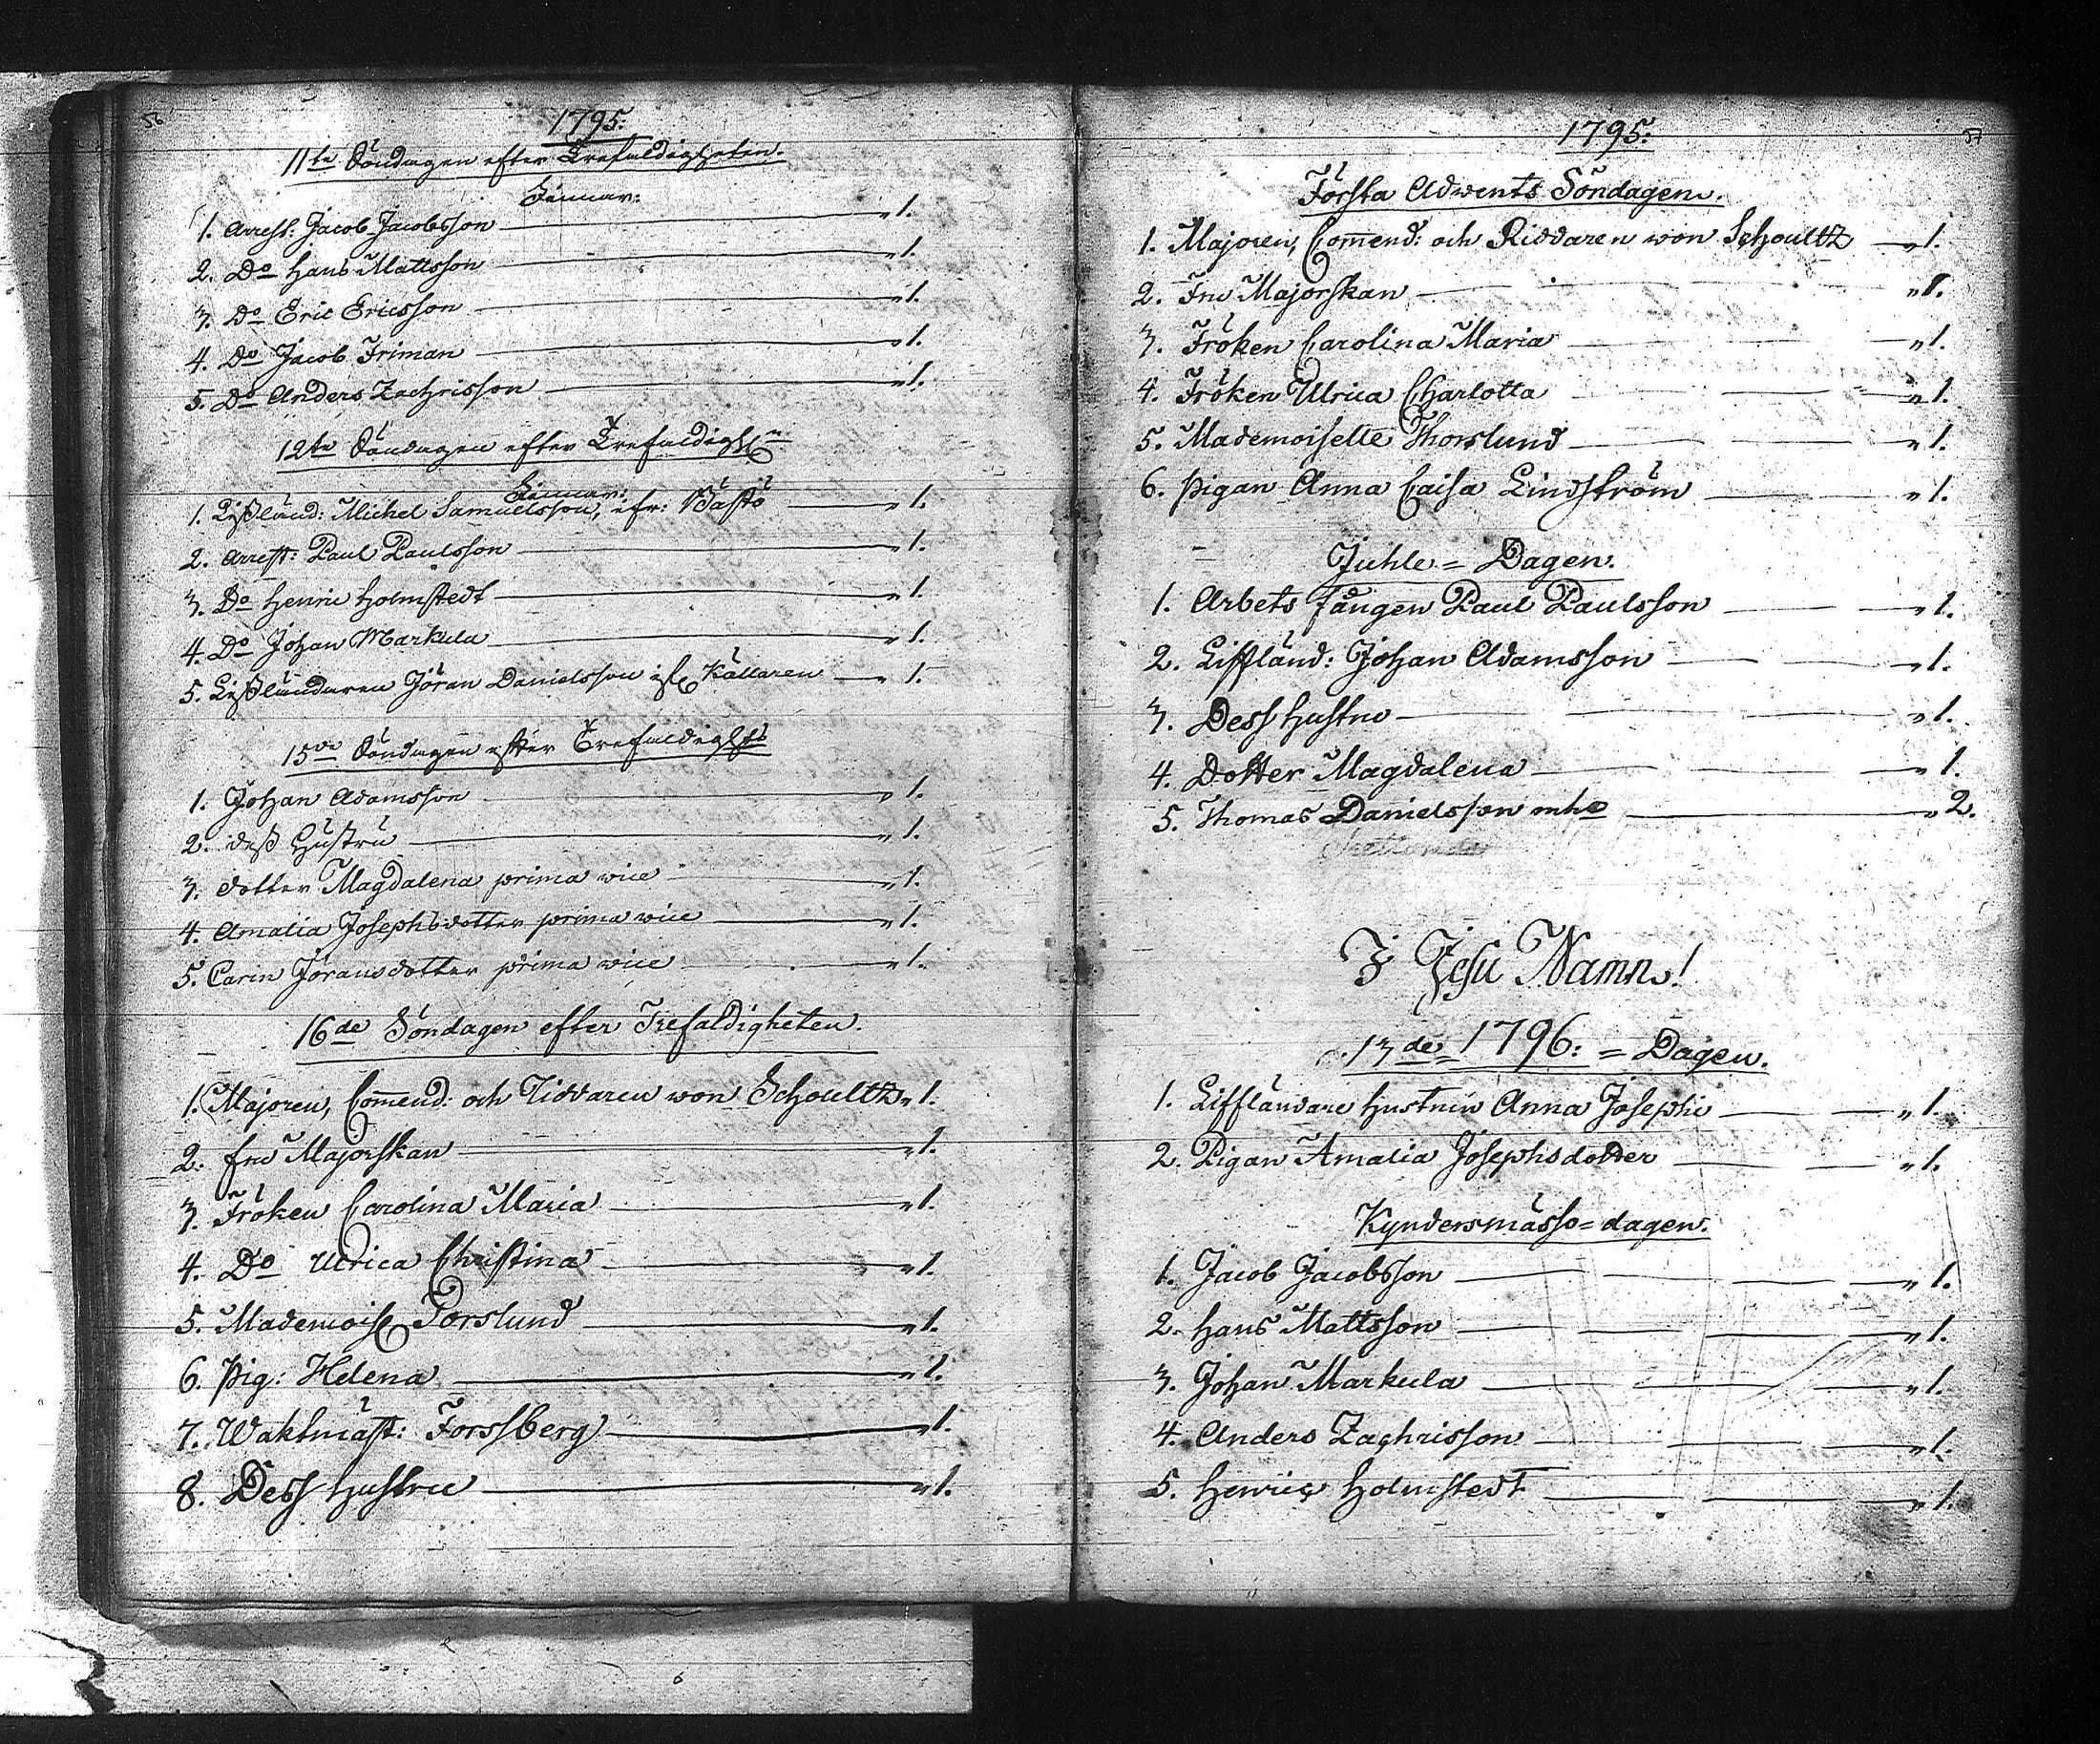 56
1795.
11te Söndagen efter Trefaldigheten.
Finnar:
1. Arrest: Jacob Jacobsson — „ 1.
2. Do Hans Mattsson — „ 1.
3. Do Eric Ericsson — „ 1.
4. Do Jacob Friman — „ 1.
5. Do Anders Zachrisson — „ 1.
12te Söndagen efter Trefaldigh:n
Finnar:
1. Lifländ: Michel Samuelsson, ifr: Båstö — „ 1.
2. Arrest: Paul Paulsson — „ 1.
3. Do Henric Holmstedt — „ 1.
4. Do Johan Markula — „ 1.
5. Lifländaren Jöran Danielsson Källaren — „ 1.
15de Söndagen efter Trefaldigh:
1. Johan Adamsson — „ 1.
2. dess Hustru — „ 1.
3. dotter Magdalena prima vice — „ 1.
4. Amalia Josephsdotter prima vice — „ 1.
5. Carin Joransdotter prima vice — „ 1.
16de Söndagen efter Trefaldigheten.
1. Majoren, Com̄end: och Riddaren von Schoultz „ 1.
2. fru Majorskan — „ 1.
3. Fröken Carolina Maria — „ 1.
4. Do Ulrica Christina — „ 1.
5. Mademois: Torslund — „ 1.
6. Pig: Helena — „ 1.
7. Waktmäst: Forssberg — „ 1.
8. Dess Hustru — „ 1.
57
1795.
Första Advents Söndagen.
1. Majoren, Com̄end: och Riddaren von Schoultz — „ 1.
2. Fru Majorskan — „ 1.
3. Fröken Carolina Maria — „ 1.
4. Fröken Ulrica Charlotta — „ 1.
5. Mademoiselle Thorslund — „ 1.
6. Pigan Anna Caisa Lindström — „ 1.
Juhle = Dagen.
1. Arbets fången Paul Paulsson — „ 1.
2. Liffländ: Johan Adamsson — „ 1.
3. Dess Hustru — „ 1.
4. Dotter Magdalena — „ 1.
5. Thomas Danielsson mho — „ 2.
I Jesu Namn!
13de = 1796: = Dagen.
1. Liffländare hustrun Anna Josephi — „ 1.
2. Pigan Amalia Josephsdotter — „ 1.
Kyndersmässo = dagen.
1. Jacob Jacobsson — „ 1.
2. Hans Mattsson — „ 1.
3. Johan Markula — „ 1.
4. Anders Zachrisson — „ 1.
5. Henric Holmstedt — „ 1.